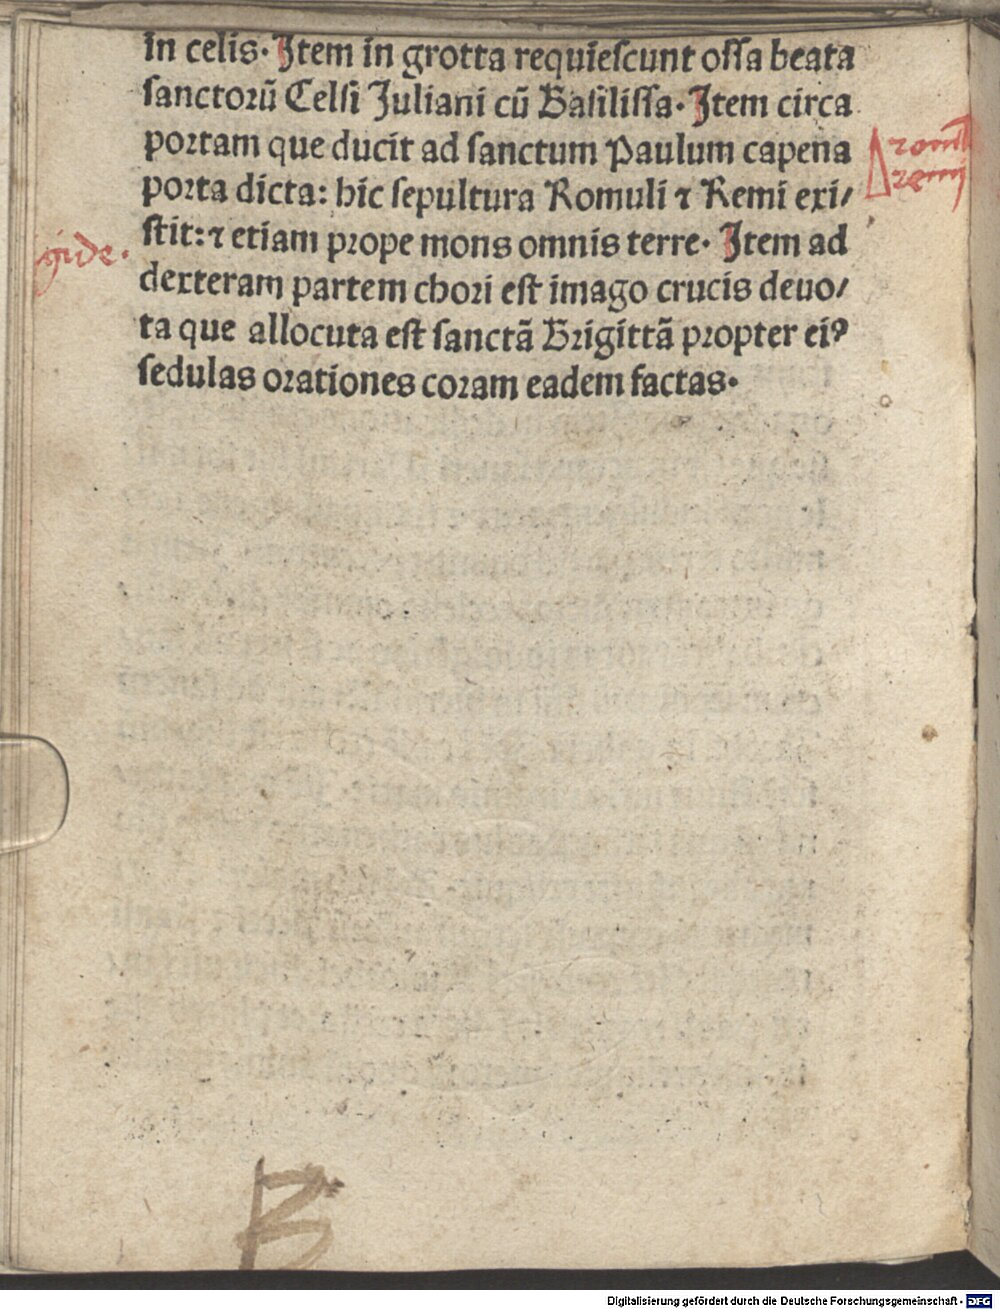 in celis. Jtem in grotta requiescunt ossa beata
sanctorū Celsi Juliani cū Basilissa. Jtem circa
portam que ducit ad sanctum Paulum capena
porta dicta: hic sepultura Romuli ⁊ Remi exi/
stit: ⁊ etiam prope mons omnis terre. Jtem ad
dexteram partem chori est imago crucis deuo/
ta que allocuta est sanctā Brigittā propter eiꝰ
sedulas orationes coram eadem factas.
remi
B
Digitalisierung gefördert durch die Deutsche Forschungsgemeinschaft - DFG